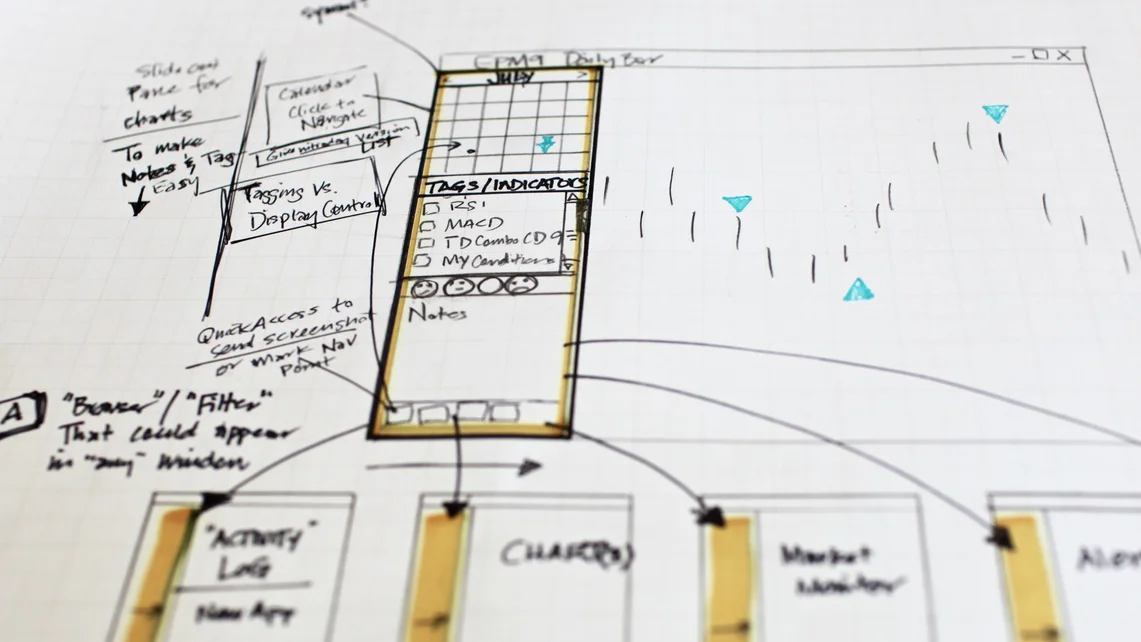 symbol?
EPM9 Daily Bar
Slide out
Pane for
charts
To make
Notes & Tag
Easy
Calendar
Click to
Navigate
Give intraday version
List
Tagging vs.
Display Control
JULY >
TAGS/INDICATORS
RSI
MACD
TD Combo CD 9
My Conditions
Notes
Quick Access to
send screenshot
or mark Nav
Point
A
"Browser" / "Filter"
That could appear
in "any" window
"ACTIVITY"
LOG
New App
CHART(S)
Market
Monitor